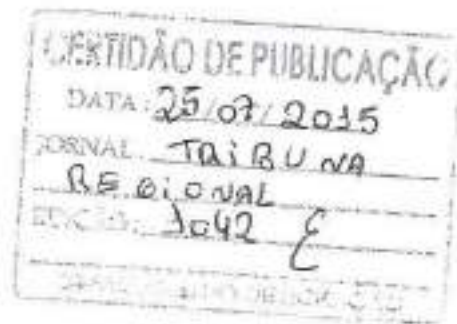 CERTIDÃO DE PUBLICAÇÃO
DATA: 25/07/2015
JORNAL: TRIBUNA
REGIONAL
EDIÇÃO: 1042